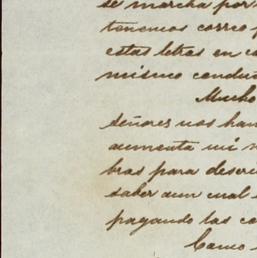 se marcha por
tenemos correo
estas letras en c
mismo conduc
Mucho
señores nos han
aumenta mi
bras para descri
saber aun cual
pagando las co
Como